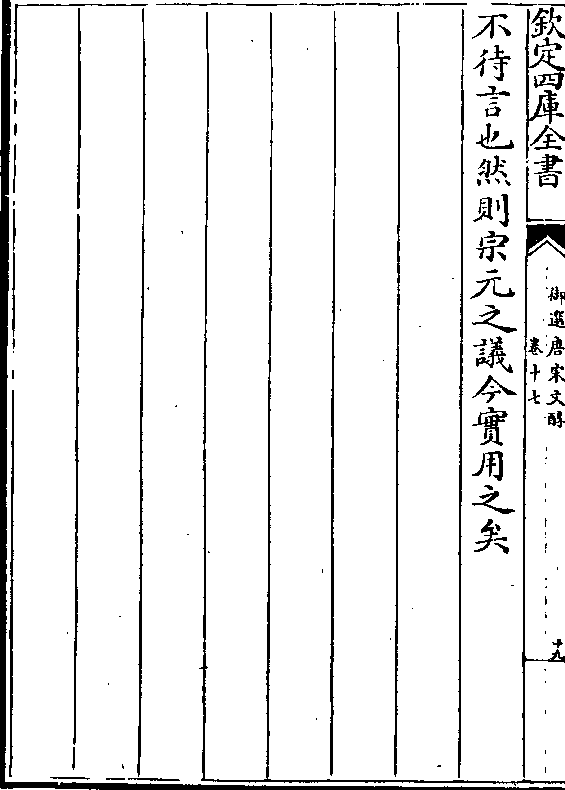 欽定四庫全書
御選唐宋文醇
卷十七
十九
不待言也然則宗元之議今實用之矣